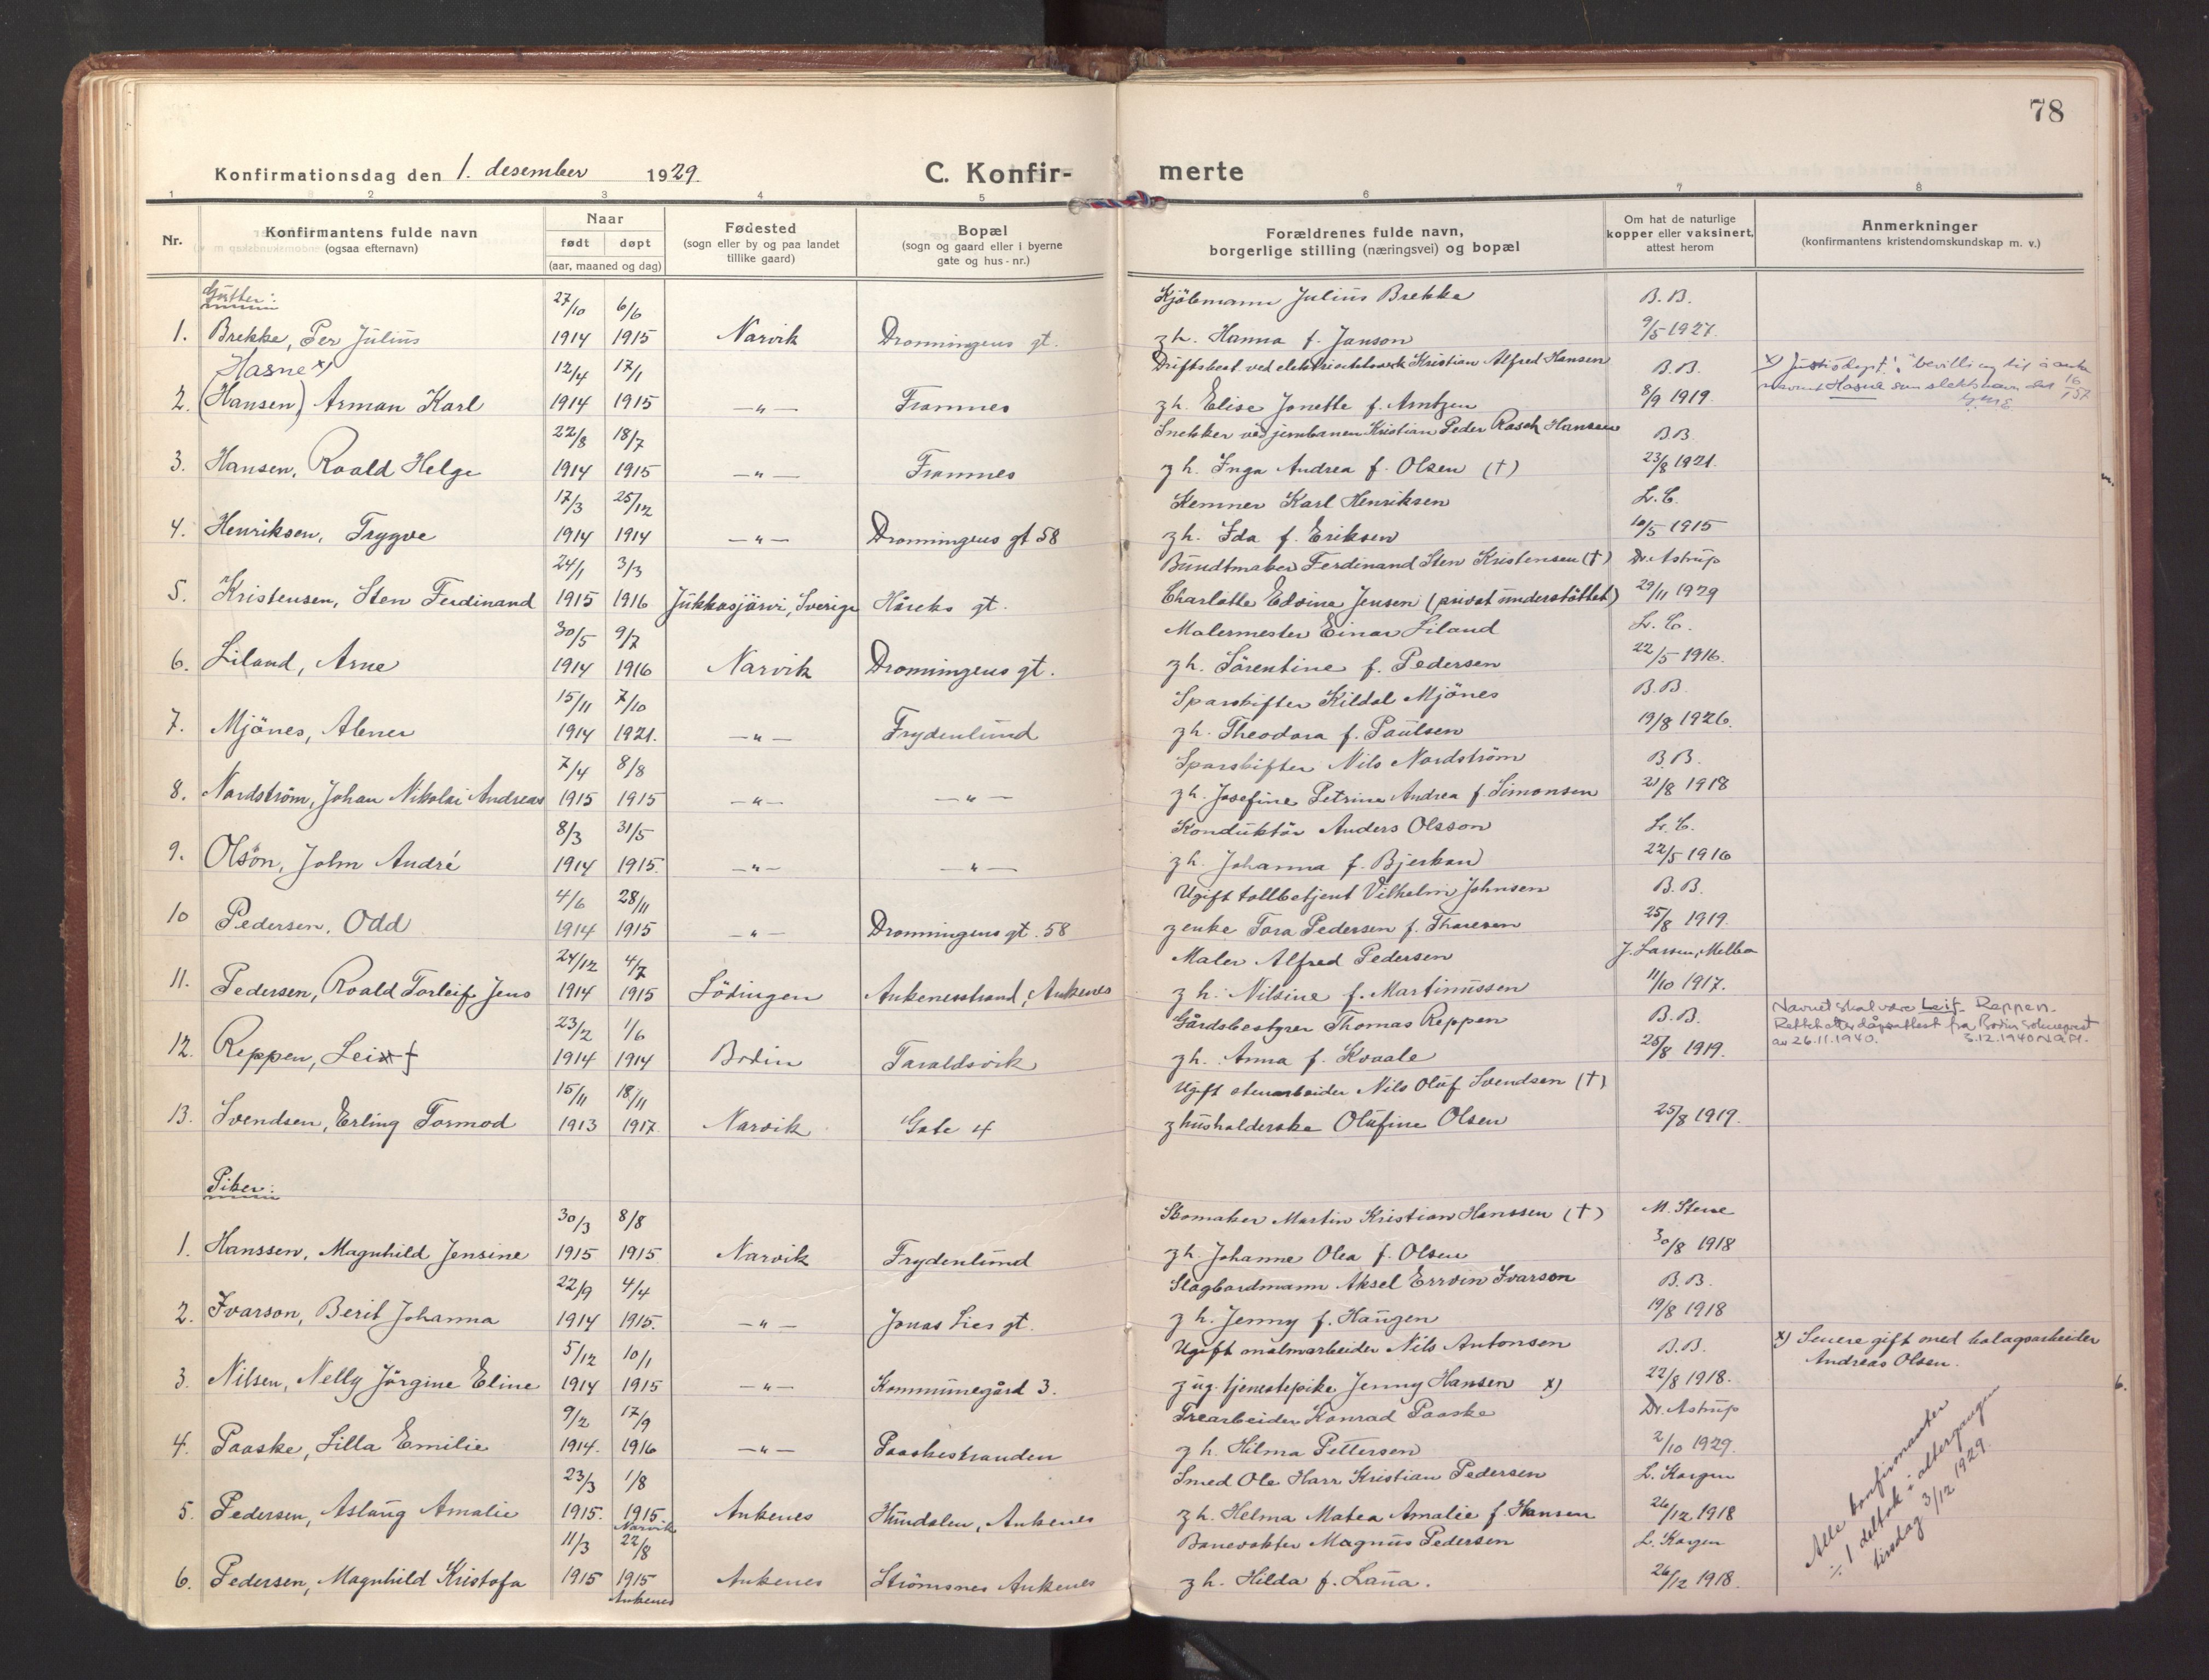 78
Konfirmationsdag den 1. desember 1929.
C. Konfirmerte
1 2 3 4 5 6 7 8
Nr.
Konfirmantens fulde navn
(ogsaa efternavn)
Naar
født døpt
(aar, maaned og dag)
Fødested
(sogn eller by og paa landet
tillike gaard)
Bopæl
(sogn og gaard eller i byerne
gate og hus-nr.)
Forældrenes fulde navn,
borgerlige stilling (næringsvei) og bopæl
Om hat de naturlige
kopper eller vaksinert,
attest herom
Anmerkninger
(konfirmantens kristendomskundskap m. v.)
Gutter:
27/10 6/6 Kjöbmann Julius Brekke B.B.
1. Brekke, Per Julius 1914 1915 Narvik Dronningens gt. g h. Hanna f. Janson 9/5 1927.
Hasne x) 12/4 17/1 Driftsbest. ved elektrisitetsverk Kristian Alfred Hansen B.B. x) Justisdept.'s bevilling til å anta
2. (Hansen) Arman Karl 1914 1915 —"— Framnes g h. Elise Jonette f. Arntzen 8/9 1919. navnet Hasne som slektsnavn
22/8 18/7 Snekker ved jernbanen Kristian Peder Rasch Hansen B.B.
3. Hansen, Roald Helge 1914 1915 —"— Framnes g h. Inga Andrea f. Olsen (†) 23/8 1921.
17/3 25/12 Kemner Karl Henriksen L.C.
4. Henriksen, Trygve 1914 1914 —"— Dronningens gt 58 g h. Ida f. Eriksen 10/5 1915
24/1 3/3 Bundtmaker Ferdinand Sten Kristensen (†) Dr. Astrup
5. Kristensen, Sten Ferdinand 1915 1916 Jukkasjärvi, Sverige Håreks gt. Charlotte Edvine Jensen (privat understöttet) 29/11 1929
30/5 9/7 Malermester Einar Liland L.C.
6. Liland, Arne 1914 1916 Narvik Dronningens gt. g h. Sörentine f. Pedersen 22/5 1916.
15/11 7/10 Sparskifter Kildal Mjönes B.B.
7. Mjönes, Abner 1914 1921. —"— Frydenlund g h. Theodora f. Paulsen 19/8 1926.
7/4 8/8 Sporskifter Nils Nordström B.B.
8. Nordström, Johan Nikolai Andreas 1915 1915 —"— —"— g h. Josefine Petrine Andrea f. Simonsen 21/8 1918
8/3 31/5 Konduktör Anders Olsson L.C.
9. Olsön, John André 1914 1915. —"— —"— g h. Johanna f. Bjerkan 22/5 1916
4/6 28/11 Ugift tollbetjent Vilhelm Johnsen B.B.
10 Pedersen, Odd 1914 1915 —"— Dronningens gt. 58 g enke Tora Pedersen f. Thoresen 25/8 1919.
24/12 4/7 Maler Alfred Pedersen J. Larsen, Melbo
11. Pedersen, Roald Torleif Jens 1914 1915 Lödingen Ankenesstrand, Ankenes g h. Nilsine f. Martinussen 11/10 1917.
23/2 1/6 Gårdsbestyrer Thomas Reppen B.B. Navnet skal være Leif Reppen.
12. Reppen, Leif 1914 1914 Bodin Taraldsvik g h. Anna f. Kvaale 25/8 1919. Rettet etter dåpsattest fra Bodin sokneprest
av 26.11.1940. 5.12.1940
15/11 18/11 Ugift stenarbeider Nils Oluf Svendsen (†)
13. Svendsen, Erling Tormod 1913 1917. Narvik Gate 4 g husholderske Olufine Olsen 25/8 1919.
Piker:
30/3 8/8 Skomaker Martin Kristian Hanssen (†) M. Stene
1. Hanssen, Magnhild Jensine 1915 1915 Narvik Frydenlund g h. Johanne Olea f. Olsen 30/8 1918
22/9 4/4 Slagbordmann Aksel Ervin Ivarson B.B.
2. Ivarson, Berit Johanna 1914 1915. —"— Jonas Lies gt. g h. Jenny f. Haugen 19/8 1918
5/12 10/1 Ugift malmarbeider Nils Antonsen B.B. x) Senere gift med bolagsarbeider
3. Nilsen, Nelly Jörgine Eline 1914 1915 —"— Kommunegård 3. g ug. tjenestepike Jenny Hansen x) 22/8 1918. Andreas Olsen.
9/2 17/9 Trearbeider Konrad Paaske Dr. Astrup
4. Paaske, Lilla Emilie 1914. 1916 —"— Paaskestranden g h. Hilma Pettersen 2/10 1929.
23/3 1/8 Smed Ole Harr Kristian Pedersen L. Korgen
5. Pedersen, Aslaug Amalie 1915. 1915 Narvik Ankenes Hundalen, Ankenes g h. Helma Matea Amalie f. Hansen 26/12 1918
11/3 22/8 Banevokter Magnus Pedersen L. Korgen
6. Pedersen, Magnhild Kristofa 1915 1915 Ankenes Ankenes Strömsnes Ankenes g h. Hilda f. Laua. 26/12 1918.
Alle konfirmanter
÷ 1 deltok i altergangen
tirsdag 3/12 1929.